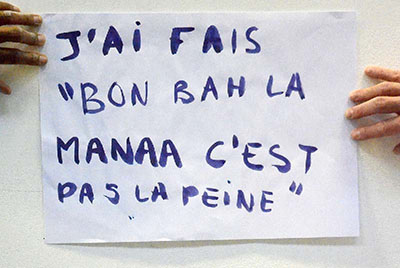 J'AI FAIS
"BON BAH LA
MANAA C'EST
PAS LA PEINE"